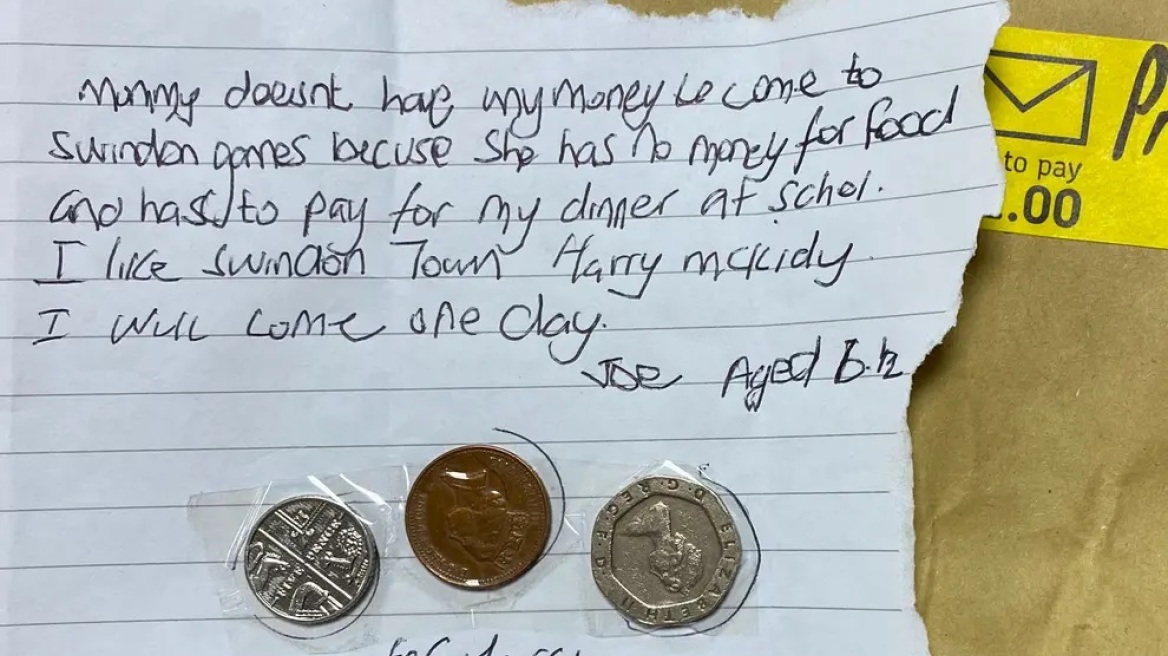 mummy doesnt have any money to come to
swindon games becuse she has no money for food
and hass to pay for my dinner at schol.
I like swindon Town Harry mckidy
I will come one day.
JOE Aged 6.½
Pr
to pay
.00
FIVE PENCE
ELIZABETH II D.G. REG. F.D.